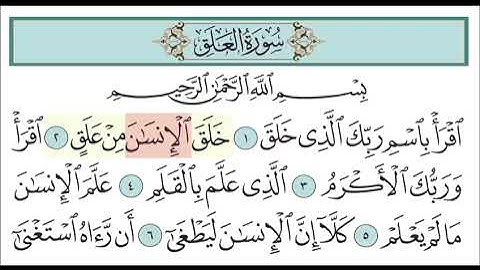 سُورَةُ الْعَلَقِ
بِسْمِ اللَّهِ الرَّحْمَٰنِ الرَّحِيمِ
ٱقْرَأْ بِٱسْمِ رَبِّكَ ٱلَّذِى خَلَقَ ١ خَلَقَ ٱلْإِنسَٰنَ مِنْ عَلَقٍ ٢ ٱقْرَأْ
وَرَبُّكَ ٱلْأَكْرَمُ ٣ ٱلَّذِى عَلَّمَ بِٱلْقَلَمِ ٤ عَلَّمَ ٱلْإِنسَٰنَ
مَا لَمْ يَعْلَمْ ٥ كَلَّآ إِنَّ ٱلْإِنسَٰنَ لَيَطْغَىٰٓ ٦ أَن رَّءَاهُ ٱسْتَغْنَىٰٓ